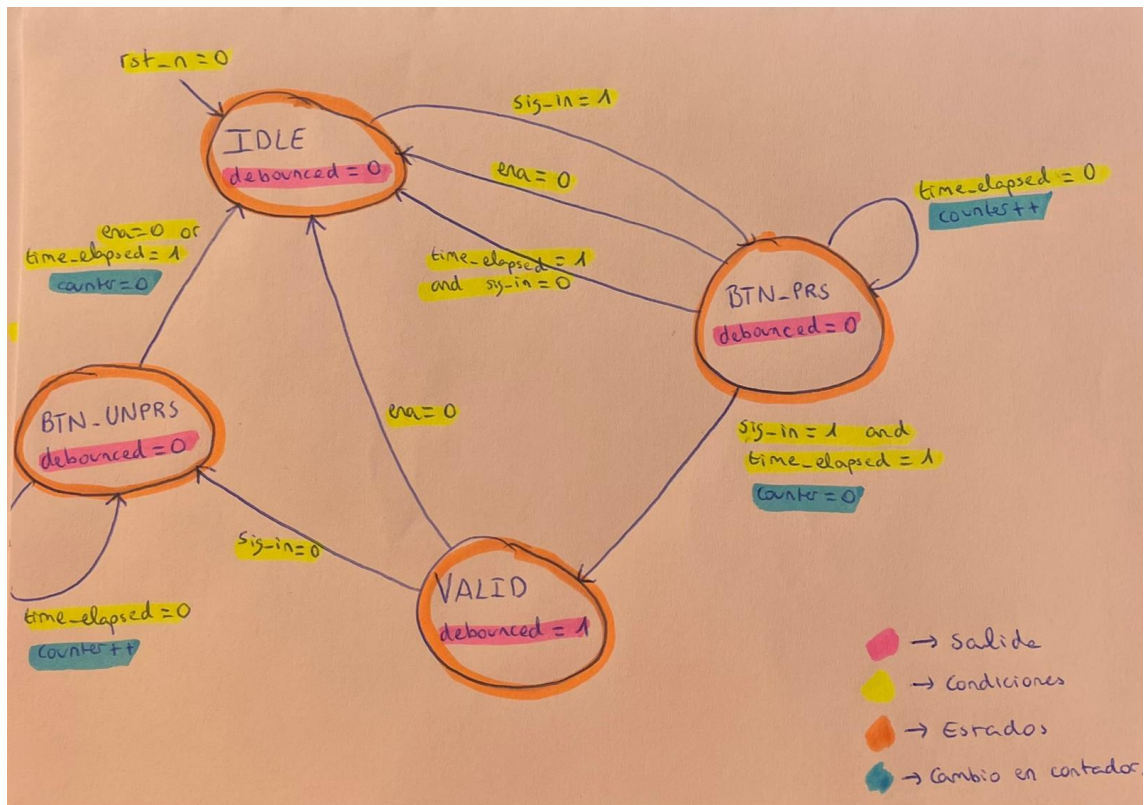 rst_n = 0
IDLE
debounced = 0
sig_in = 1
ena = 0
time_elapsed = 1
and sig_in = 0
time_elapsed = 0
counter++
BTN_PRS
debounced = 0
ena=0 or
time_elapsed = 1
counter = 0
BTN_UNPRS
debounced = 0
ena = 0
sig_in = 1 and
time_elapsed = 1
counter = 0
sig_in = 0
VALID
debounced = 1
time_elapsed = 0
counter ++
→ Salida
→ Condiciones
→ Estados
→ Cambio en contador